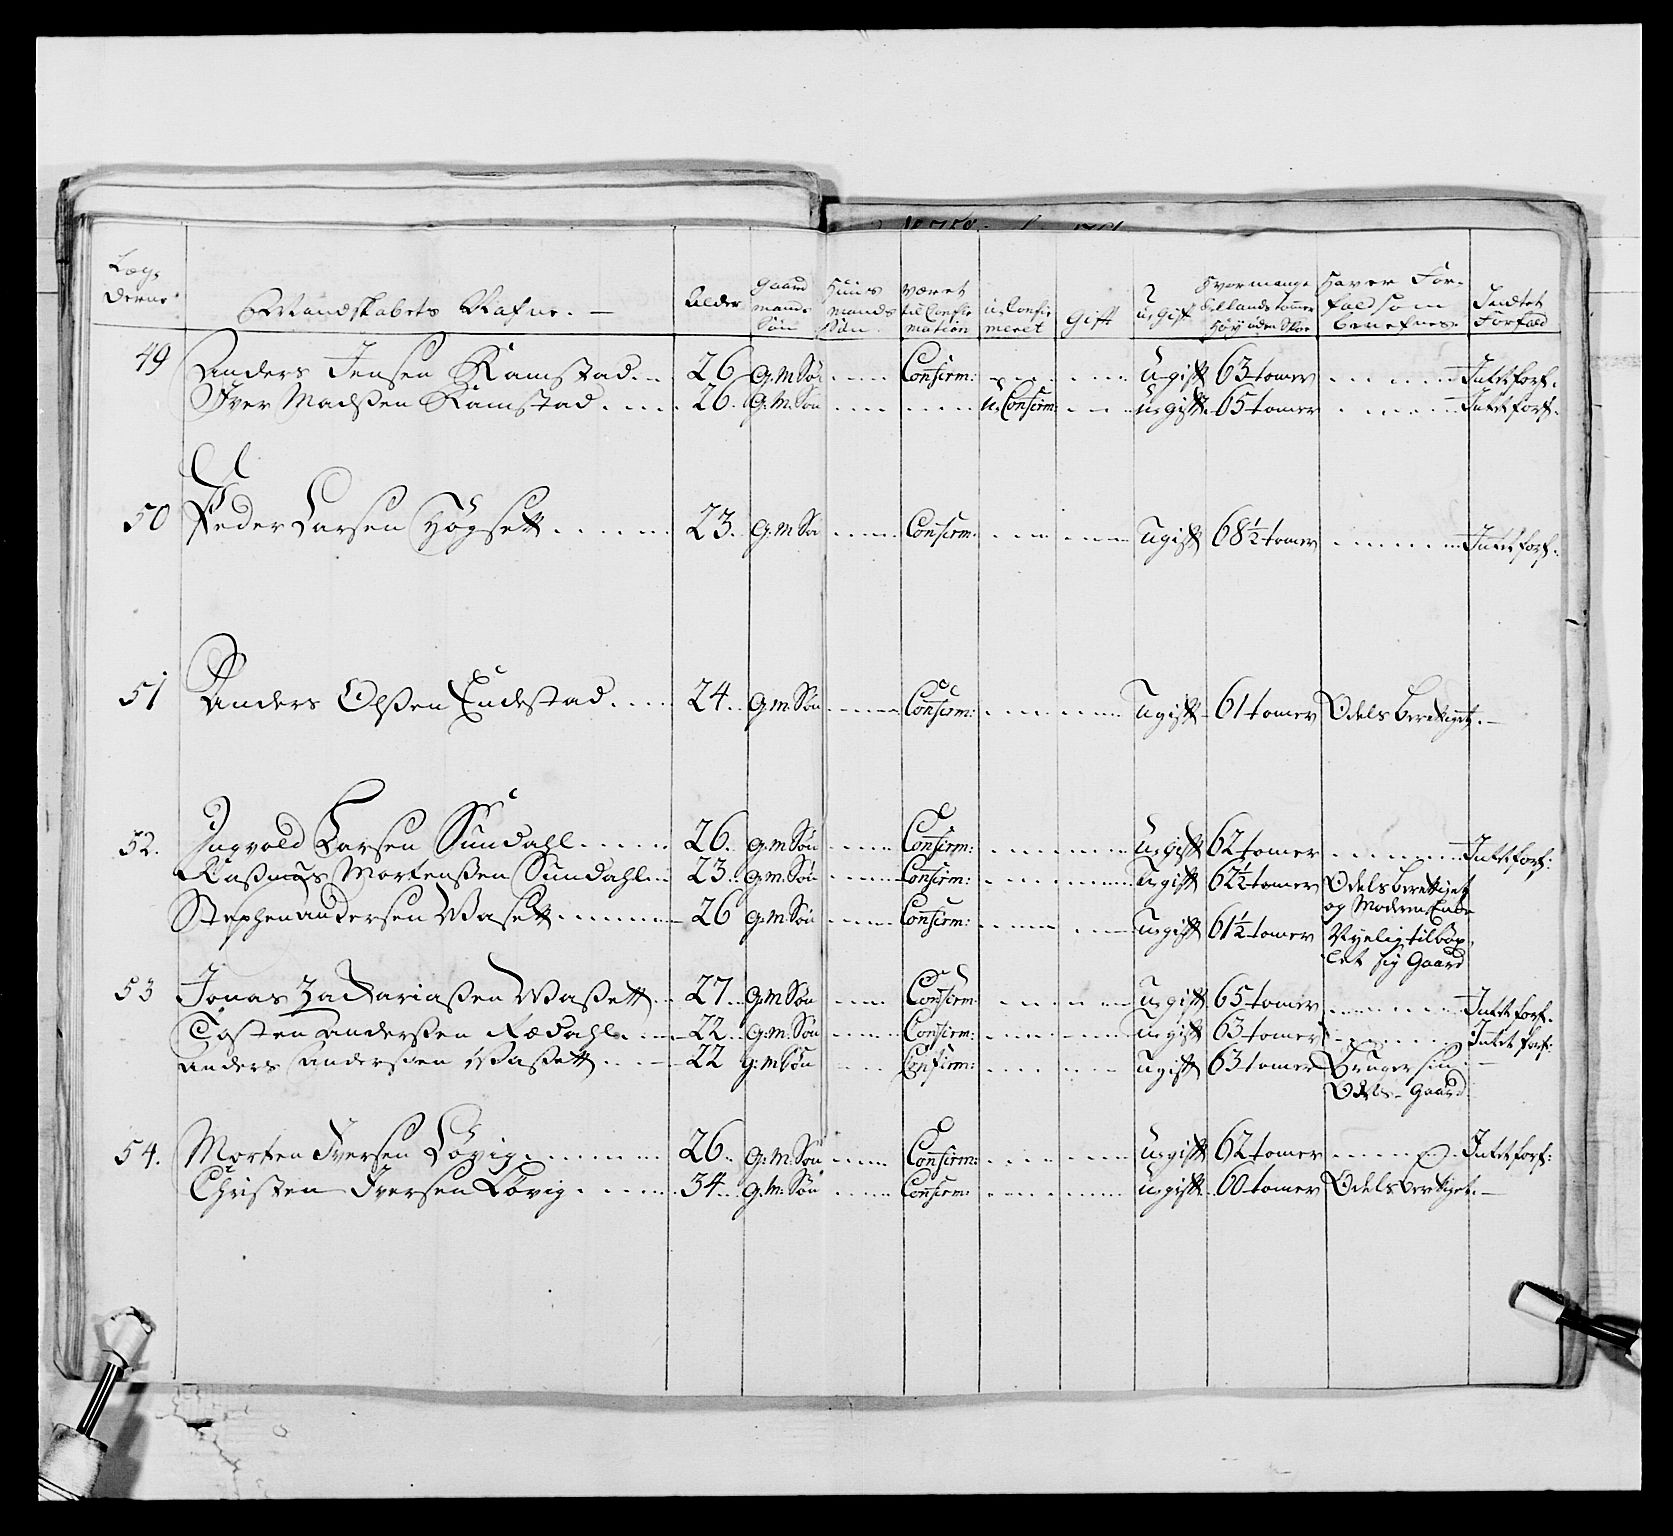 Læg,
derne
Mandskabets Nafne. —
Alder
gaard
mands
Søn
Huus
mands
Søn
været
til Confir
mation
u, Confir
meret
Gift
u, gift
Hvor mange
Sellands tomer
Høy uden Skoe
Haver For-
fal som
benefnes
Indtet
Forfald
49 Anders Jensen Ramstad 26 G. M Søn Confirm: ugift 63 tomer Intet forf.
Iver Madsen Ramstad 26. G. M. Søn u, Confirm ugift 65 tomer Intet forf.
50 Peder Larsen Høgsett 23. G. M Sø Confirm. Ugift 68½ tomer Intet forf.
51 Anders Olsen Endestad 24. G. M: Søn Confirm: Ugift 61 tomer Odelsberettiget. —
52. Ingvold Larsen Sundahl 26. G. M Søn Confirm: u, gift 62 tomer Intet forf:
Rasmus Mortensen Sundahl 23. G. M. Søn Confirm: u, gift 62½ tomer Odelsberettiget
og Moderen Enke
Stephen andersen Masett 26 G. M: Søn Confirm: Ugift 61½ tomer
let sig Gaard
53 Jonas Zackariassen Masett 27. G. M Søn Confirm u, gift 65 tomer Intet forf.
Tosten Anderssen Rædahl 22. G: M: Søn Confirm: u, gift 63 tomer Intet forf:
Anders Anderssen Masett 22 G: M Søn Confirm: Ugift 63 tomer Bruger sin
Odels-Gaard
54. Morten Iversen Løvig 26. G: M: Søn Confirm: u, gift 62 tomer Intet forf:
Christen Iversen Løvig 34. G. M: Søn Confirm: u, gift 60 tomer Odelsberettiget. —